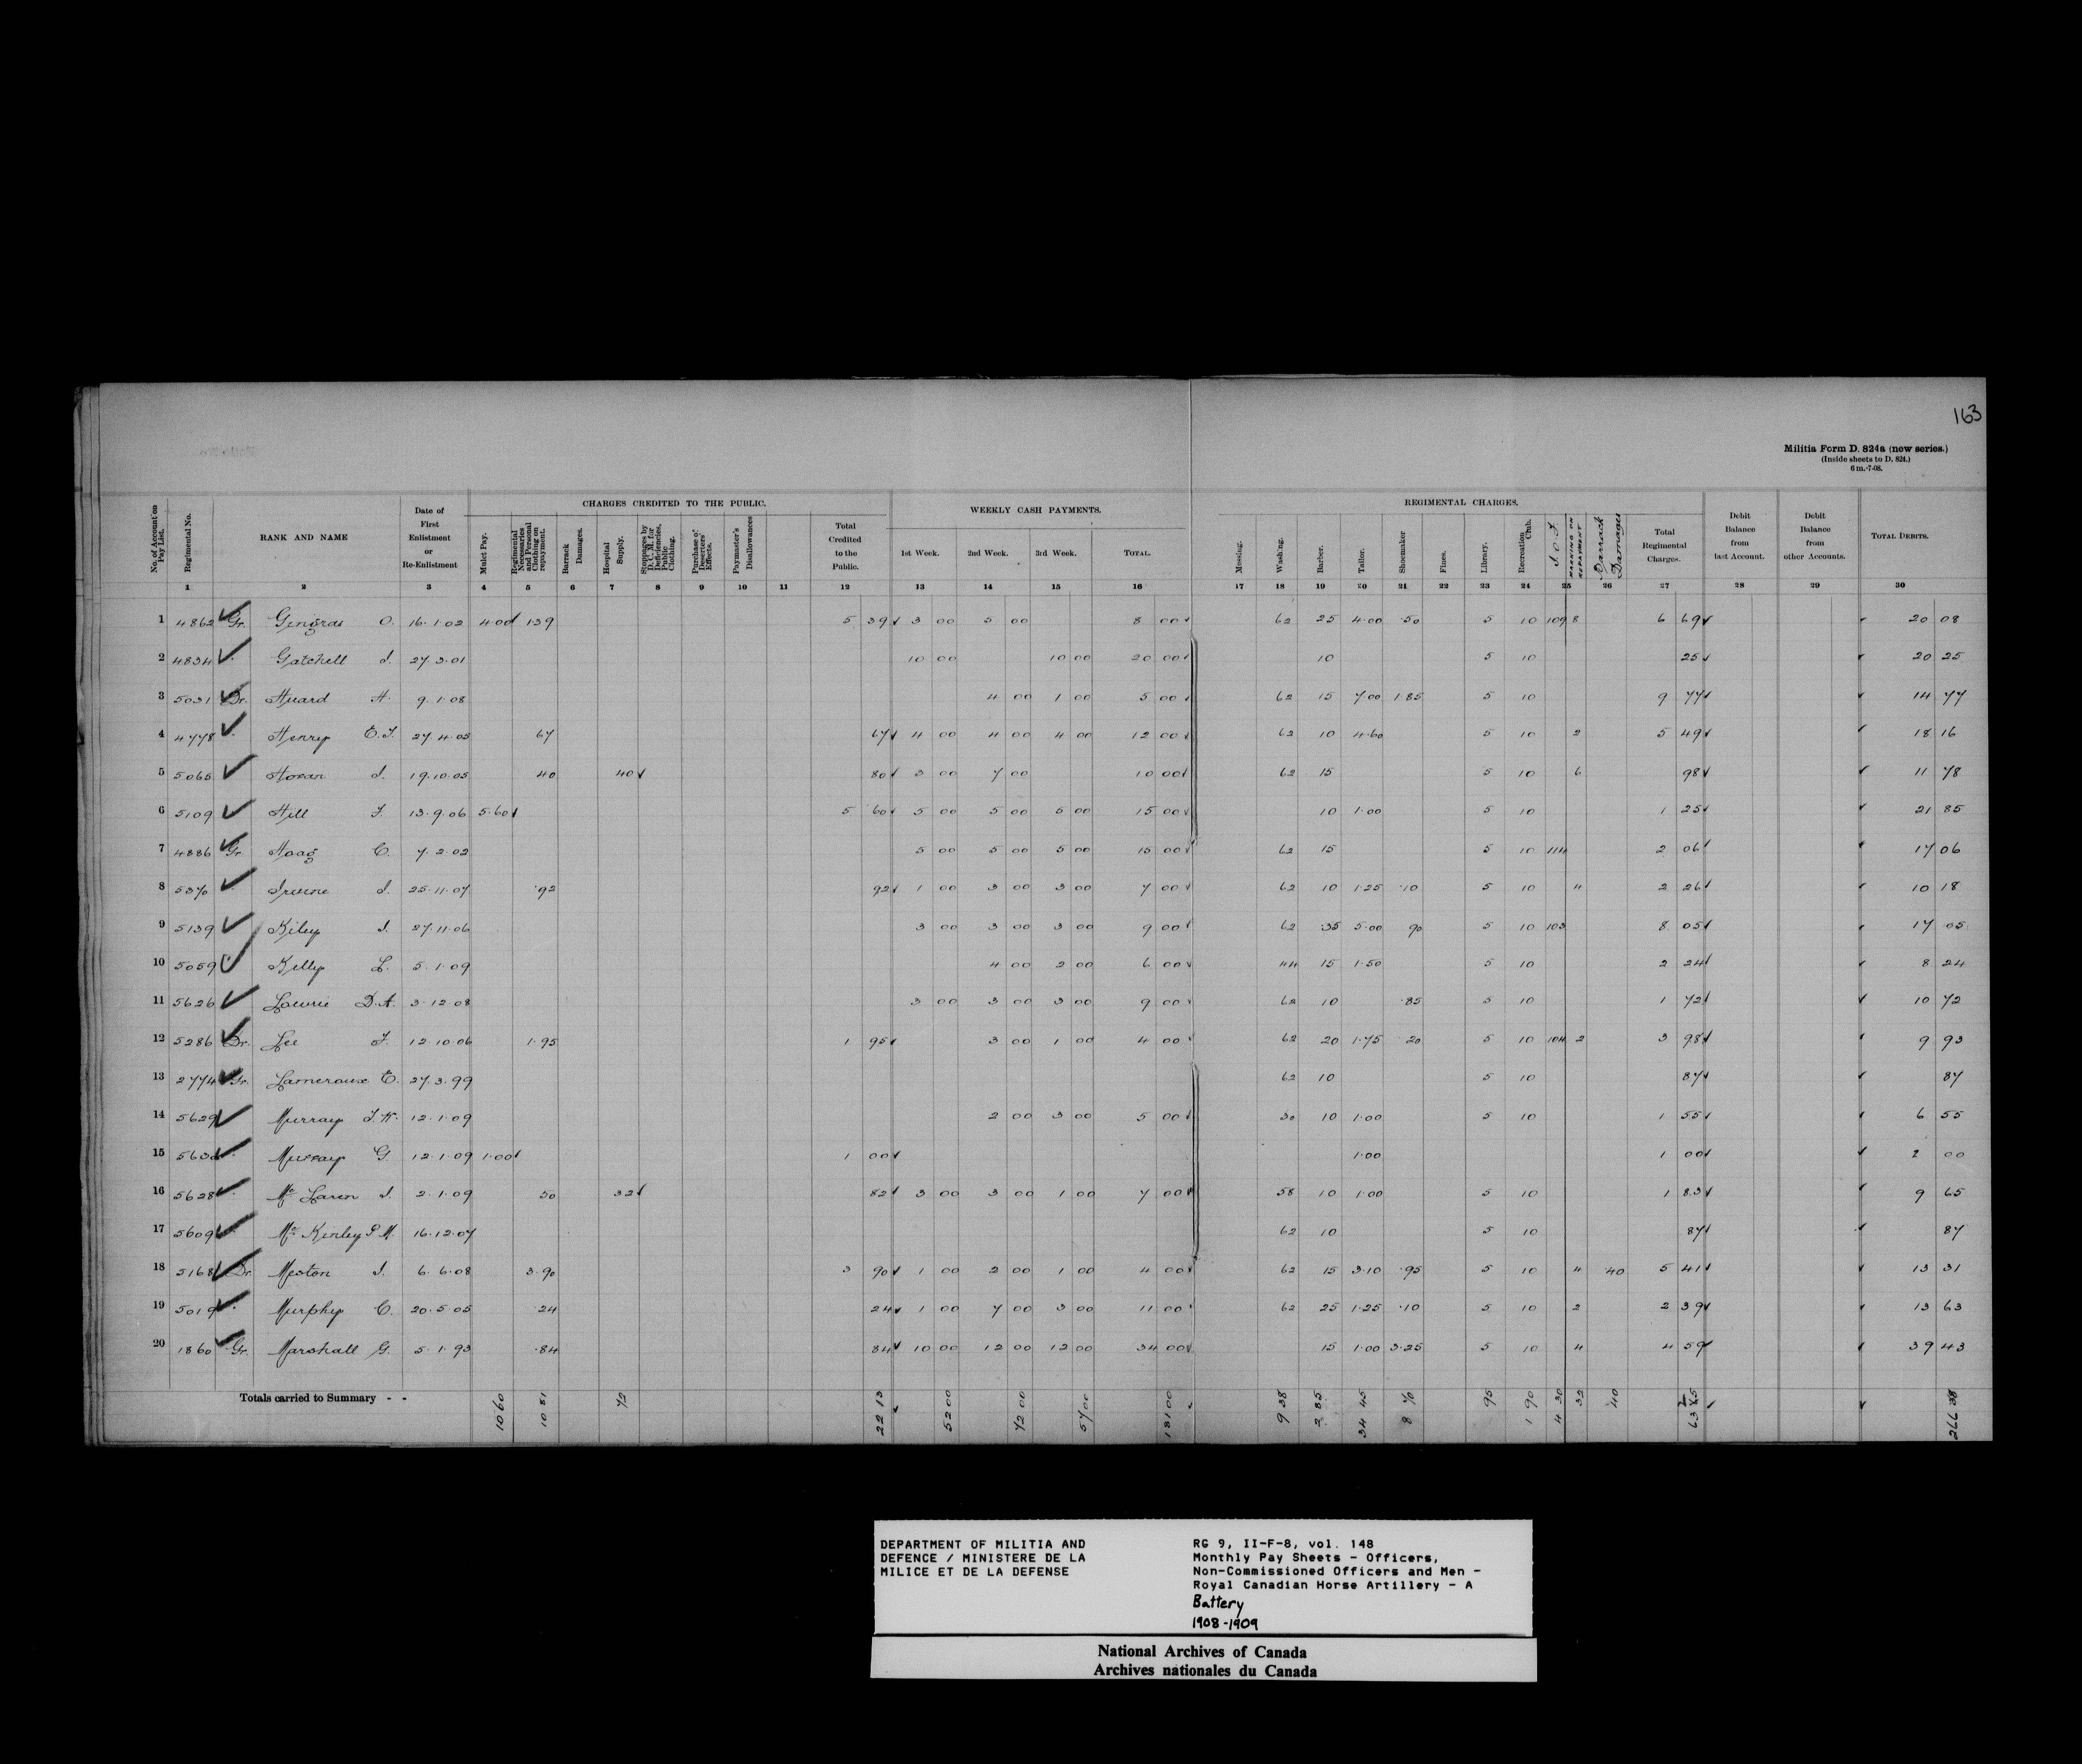 163
Militia Form D. 824a (new series.)
(Inside sheets to D. 824.)
6 m.-7-08.
No. of Account on Pay List. Regimental No. RANK AND NAME Date of First Enlistment or Re-Enlistment CHARGES CREDITED TO THE PUBLIC. WEEKLY CASH PAYMENTS. REGIMENTAL CHARGES. Debit Balance from last Account. Debit Balance from other Accounts. TOTAL DEBITS.
Mulct Pay. Regimental Necessaries and Personal Clothing on repayment. Barrack Damages. Hospital Supply. Stoppages by D.C.M. for Deficiencies, Public Clothing. Purchase of Deserters' Effects. Paymaster's Disallowances Total Credited to the Public. 1st Week. 2nd Week. 3rd Week. TOTAL. Messing. Washing. Barber. Tailor. Shoemaker Fines. Library. Recreation Club. MARKING ON REPAYMENT Barrack Damages Total Regimental Charges.
1 2 3 4 5 6 7 8 9 10 11 12 13 14 15 16 17 18 19 20 21 22 23 24 25 26 27 28 29 30
1 4862 Gr. Gingras O. 16.1.02 4.00 1.39 5 39 3 00 5 00 8 00 62 25 4.00 .50 5 10 109 8 6 69 20 08
2 4834 Gatchell J. 27.3.01 10 00 10 00 20 00 10 5 10 25 20 25
3 5031 Dr. Huard H. 9.1.08 4 00 1 00 5 00 62 15 7.00 1.85 5 10 9 77 14 77
4 4778 Henry E.J. 27.4.05 67 67 4 00 4 00 4 00 12 00 62 10 4.60 5 10 2 5 49 18 16
5 5065 Horan J. 19.10.05 40 40 80 3 00 7 00 10 00 62 15 5 10 6 98 11 78
6 5109 Hill F. 13.9.06 5.60 5 60 5 00 5 00 5 00 15 00 10 1.00 5 10 1 25 21 85
7 4886 Gr. Hoag C. 7.2.02 5 00 5 00 5 00 15 00 62 15 5 10 114 2 06 17 06
8 5370 Irwine J. 25.11.07 .92 92 1 00 3 00 3 00 7 00 62 10 1.25 .10 5 10 4 2 26 10 18
9 5139 Kiley J. 27.11.06 3 00 3 00 3 00 9 00 62 35 5.00 90 5 10 103 8 05 17 05
10 5059 Kelly L. 5.1.09 4 00 2 00 6 00 44 15 1.50 5 10 2 24 8 24
11 5626 Lowrie D.A. 3.12.08 3 00 3 00 3 00 9 00 62 10 .85 5 10 1 72 10 72
12 5286 Dr. Lee F. 12.10.06 1.95 1 95 3 00 1 00 4 00 62 20 1.75 20 5 10 104 2 3 98 9 93
13 2774 Gr. Lameroux E. 27.3.99 62 10 5 10 87 87
14 5629 Murray J.H. 12.1.09 2 00 3 00 5 00 30 10 1.00 5 10 1 55 6 55
15 Murray G. 12.1.09 1.00 1 00 1.00 1 00 2 00
16 5628 McLaren J. 2.1.09 50 32 82 3 00 3 00 1 00 7 00 58 10 1.00 5 10 1 83 9 65
17 5609 McKinley P.M. 16.12.07 62 10 5 10 87 87
18 5168 Dr. Meston J. 6.6.08 3.90 3 90 1 00 2 00 1 00 4 00 62 15 3.10 .95 5 10 4 40 5 41 13 31
19 5019 Murphy C. 20.5.05 .24 24 1 00 7 00 3 00 11 00 62 25 1.25 .10 5 10 2 2 39 13 63
20 1860 Gr. Marshall G. 5.1.93 .84 84 10 00 12 00 12 00 34 00 15 1.00 3.25 5 10 4 4 59 39 43
Totals carried to Summary - - 10 60 10 81 72 22 13 52 00 72 00 57 00 181 00 9 38 2 85 34 45 8 70 95 1 90 4 30 32 40 266 38
DEPARTMENT OF MILITIA AND
DEFENCE / MINISTERE DE LA
MILICE ET DE LA DEFENSE
RG 9, II-F-8, vol. 148
Monthly Pay Sheets - Officers,
Non-Commissioned Officers and Men -
Royal Canadian Horse Artillery - A
Battery
1908-1909
National Archives of Canada
Archives nationales du Canada